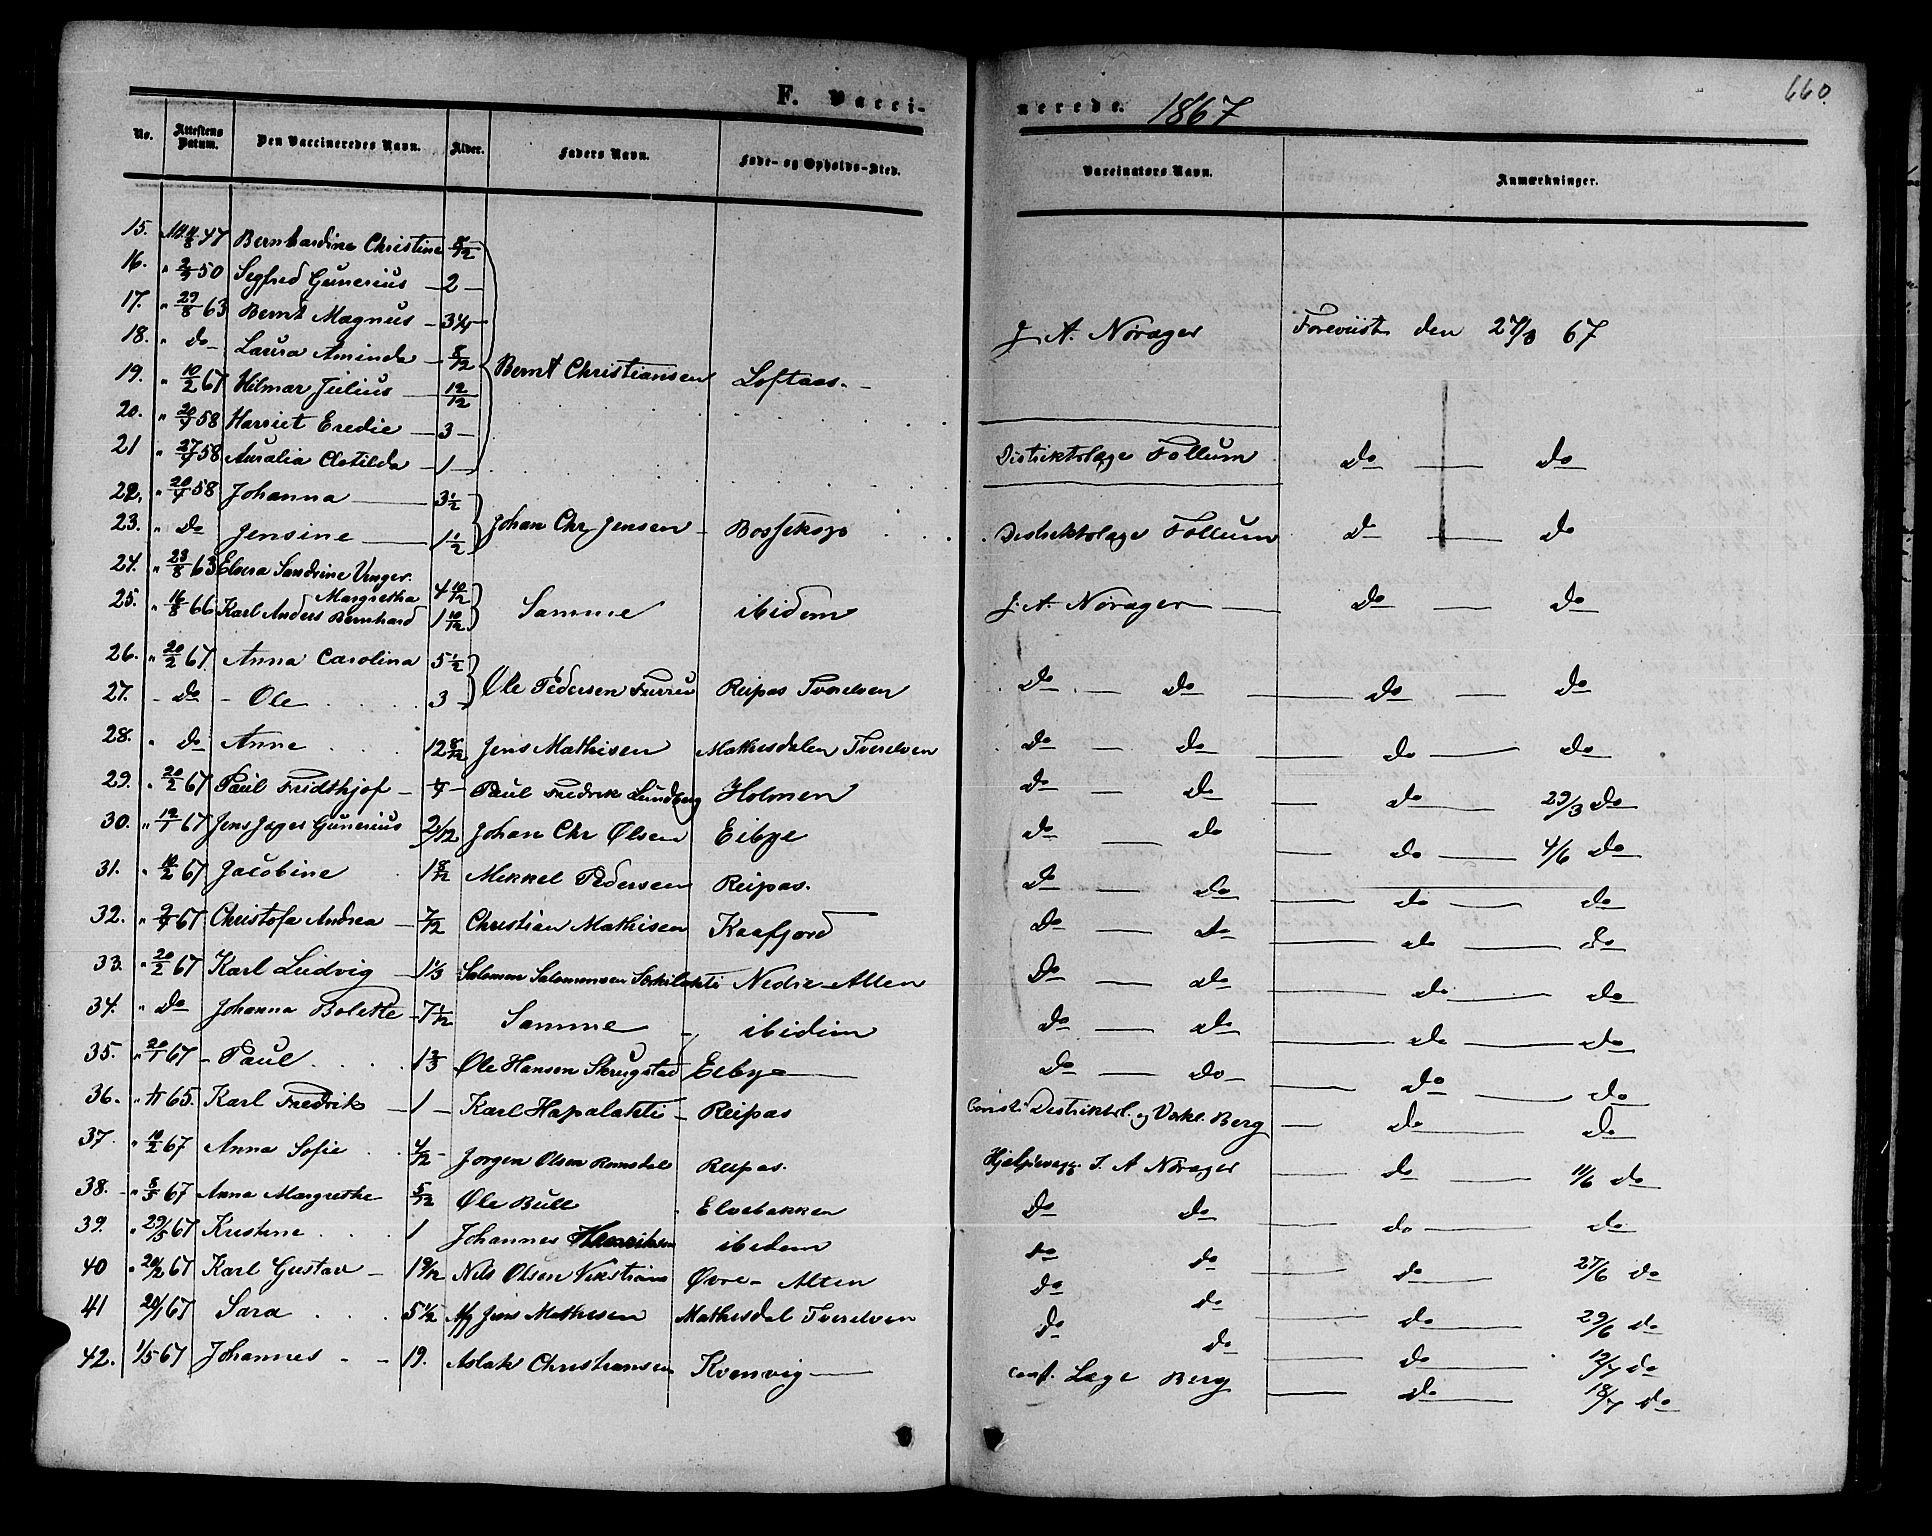 F. Vacci-
nerede. 1867
660.
No. Attestens Datum. Den Vaccineredes Navn. Alder. Faders Navn. Føde- og Opholds-Sted. Vaccinators Navn. Anmærkninger.
15. 47 Bernhardine Christine 8/12
16. " 50 Segfred Gunerius 2
17. " 29/8 63 Bernt Magnus 3 1/4 J. A. Norager Foreviist den 27/3 67
18. " do Laura Aminda 8/12
19. " 10/2 67 Hilmar Julius 12/12 Bernt Christiansen Loftaas.
20. " 58 Harriet Eredie 3
21 " 58 Auralia Clotilda 1 Distriktslæge Follum do do
22. " 58 Johanna 3 1/2
23. " do Jensine 1 1/2 Johan Chr Jensen Bossekop Distriktslæge Follum do do
24. " 23/8 63 Elvera Sandrine Unger Margretha 4 10/12
25. " 16/8 66 Karl Anders Bernhard 1 10/12 Samme ibidem J. A. Norager do do
26. " 20/2 67 Anna Carolina 5 1/2
27. - do - Ole 3 Ole Pedersen Furru Reipas Tverelven do do do do
28. " do Anne 12 8/12 Jens Mathisen Mathisdalen Tverelven do do do do
29. " 20/2 67 Paul Fridthjof Paul Fredrik Lundberg Holmen do do do 29/3 do
30. " 67 Jens Jæger Gunerius 2/12 Johan Chr Olsen Eibye do do do 4/6 do
31. " 10/2 67 Jacobine 1 8/12 Mikkel Pedersen Reipas. do do do do
32. " 67 Christofa Andrea 7/12 Christian Mathisen Kaafjord do do do do
33. " 20/2 67 Karl Ludvig 1 1/3 Salomon Salomonsen Nedre-Alten do do do do
34. " do Johanna Bolette 7 1/2 Samme ibidim do do do do
35. " 20/1 67 - Paul 1 2/3 Ole Hansen Skrugstad Eibye do do do do
36. " 65. Karl Fredrik 1 Karl Hapalahti Reipas Const. Distriktsl. og Værkl. Berg do do
37. " 10/2 67 Anna Sofie 4/12 Jorgen Olsen Romsdal Reipas. Hjælpevacc. J. A Norager do 11/6 do
38. " 67 Anna Margrethe 5/12 Ole Bull Elvebakken do do do do
39. " 29/5 67 Kristine 1 Johannes Henriksen ibidem do do do 27/6 do
40 " 20/2 67 Karl Gustav 1 9/12 Nils Olsen Øvre-Alten do do do 29/6 do
41 20/1 67 Sara 5 1/2 Afg Jens Mathisen Mathisdal Tverelven do do do 12/7 do
42. 1/5 67 Johannes 19. Aslak Christiansen Kvenvig const. Læge Berg do 18/7 do